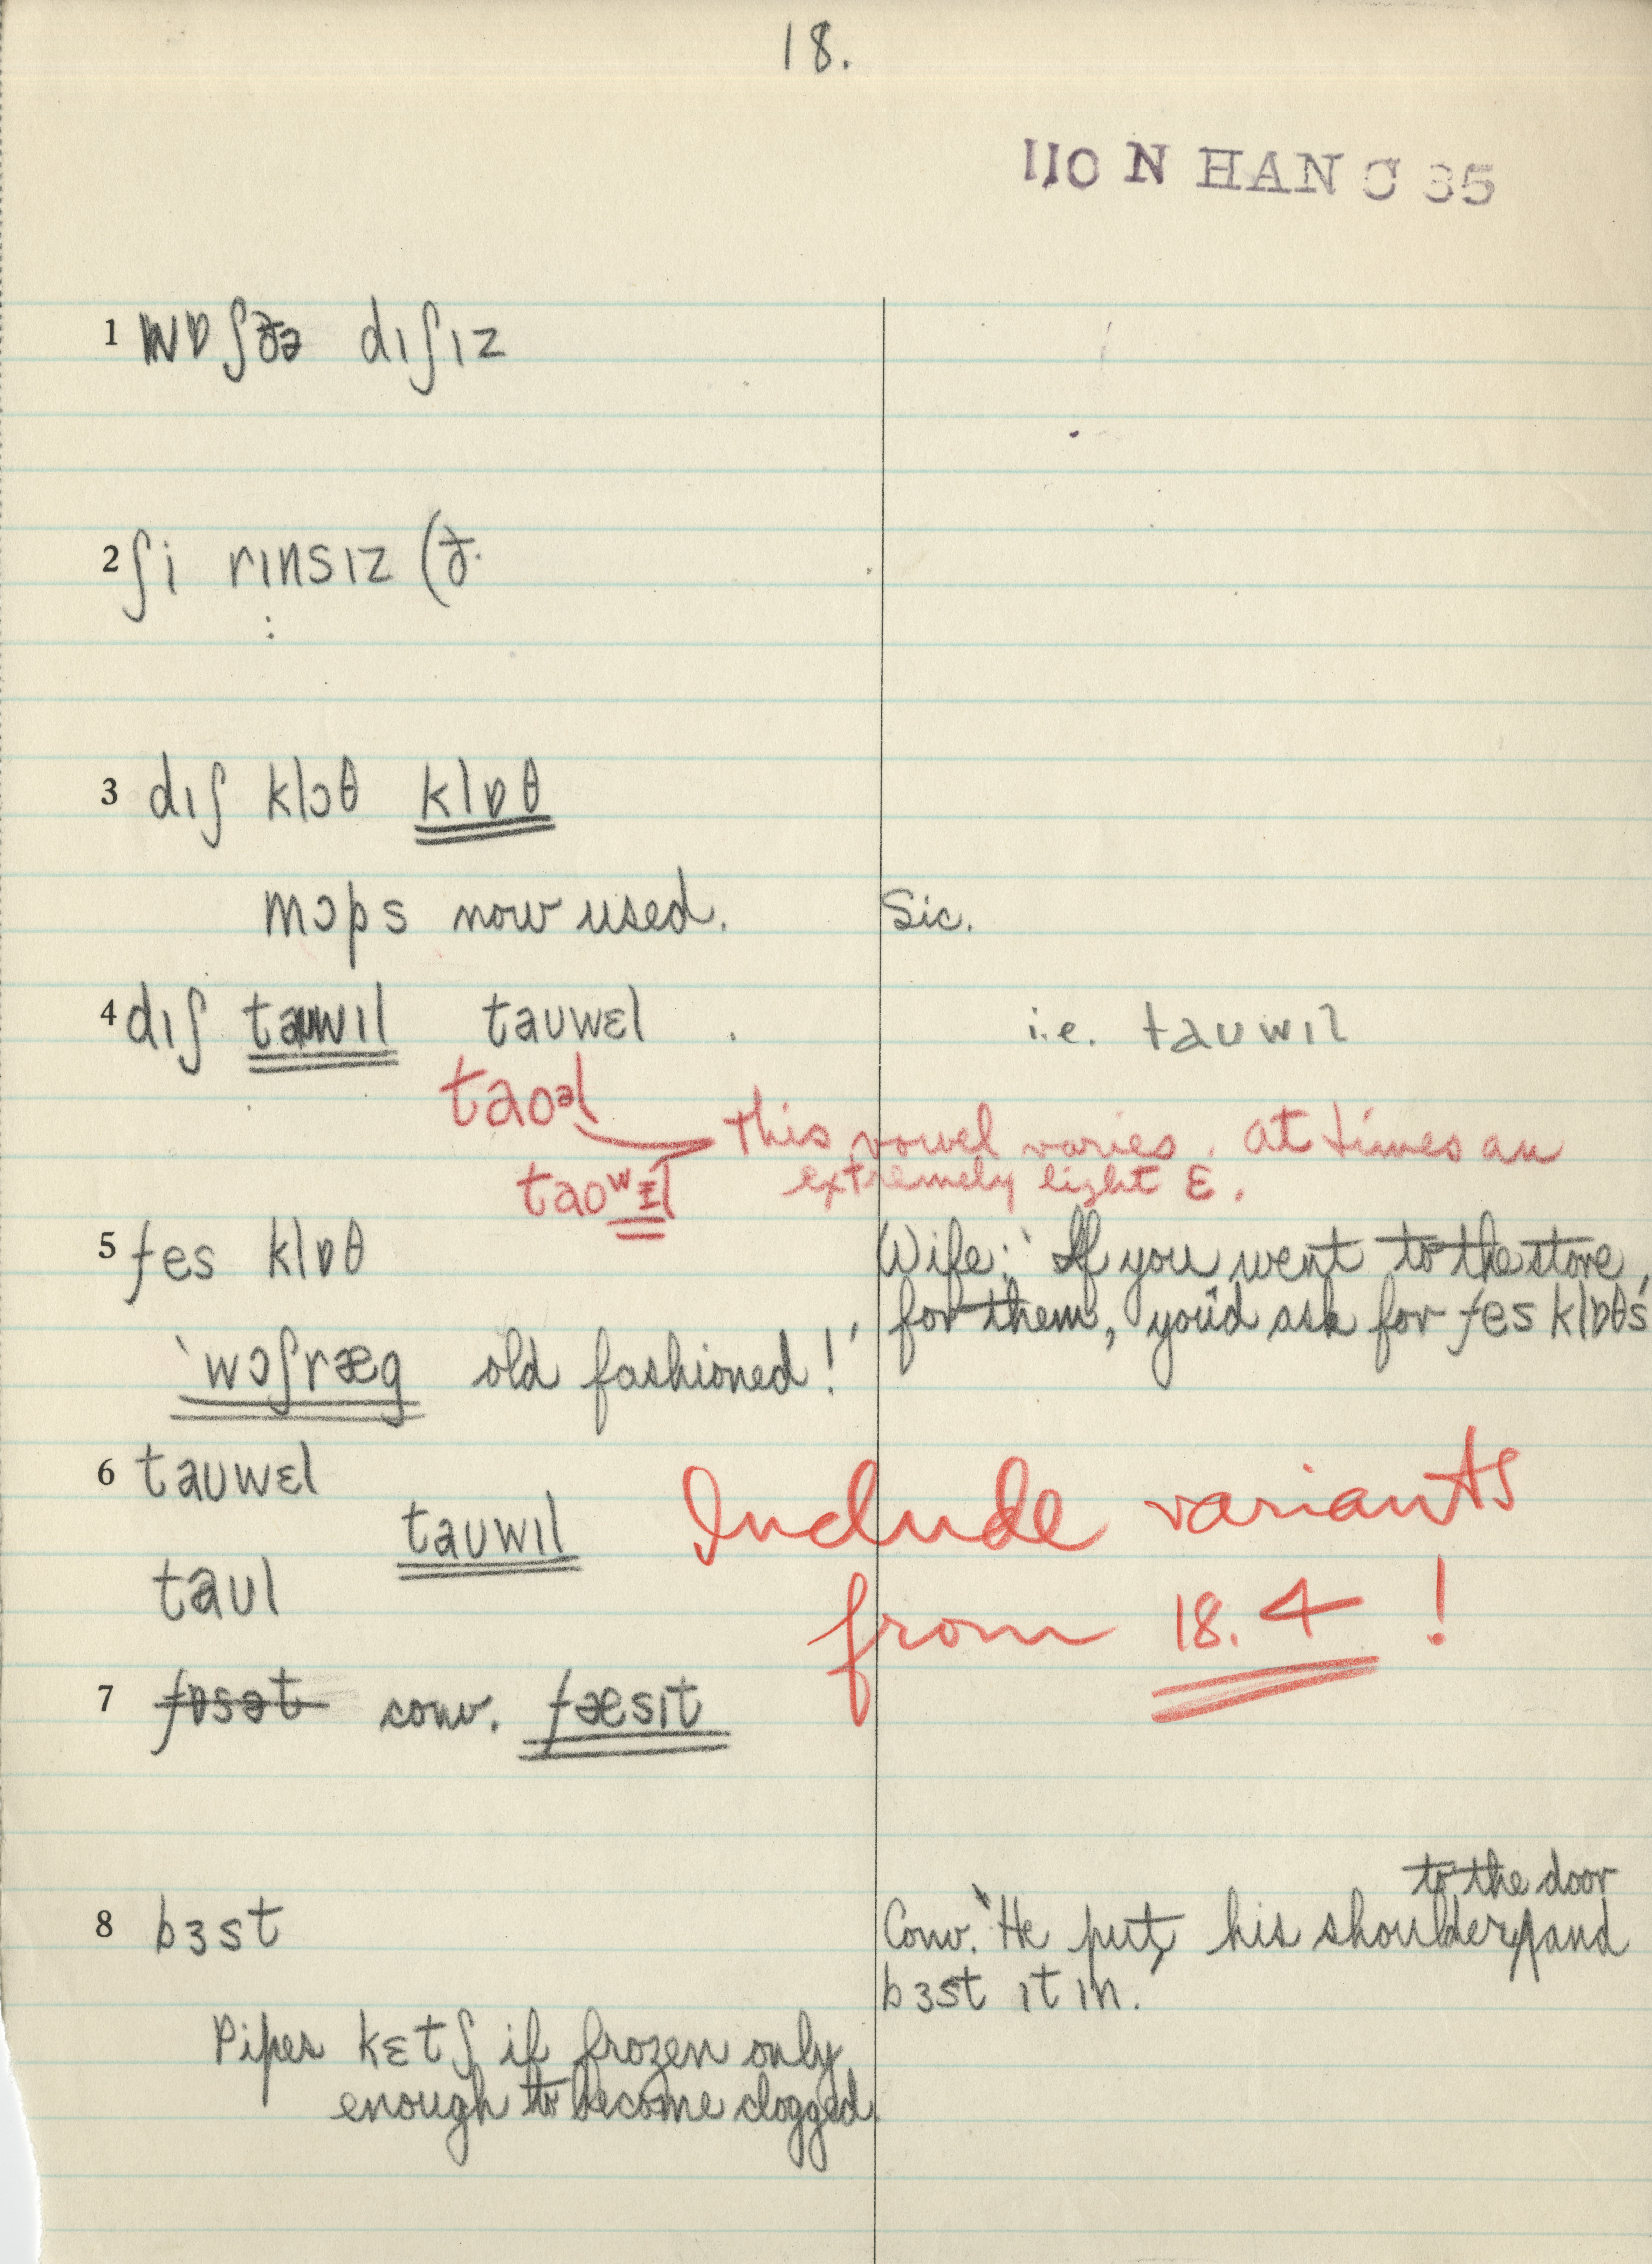 18.
110 N HAN C 35
1 wɒʃ ðə dɪʃɪz
2 ʃi rɪnsɪz (ð.
3 dɪʃ klɔθ klɒθ
mɔps now used. Sic.
4 dɪʃ tauwɪl tauwɛl . i.e. tauwɪl
taoəl
This vowel varies. At times an
taoʷɪl extremely light ɛ.
5 fes klɒθ Wife: 'If you went to the store
for them, you'd ask for fes klɒθs'
'wɔʃræg old fashioned!'
6 tauwɛl
tauwɪl Include variants
taul from 18.4!
7 fɒsət conv. fæsɪt
to the door
8 bɜst Conv. 'He put his shoulder ʌ and
bɜst ɪt ɪn.
Pipes kɛtʃ if frozen only
enough to become clogged.